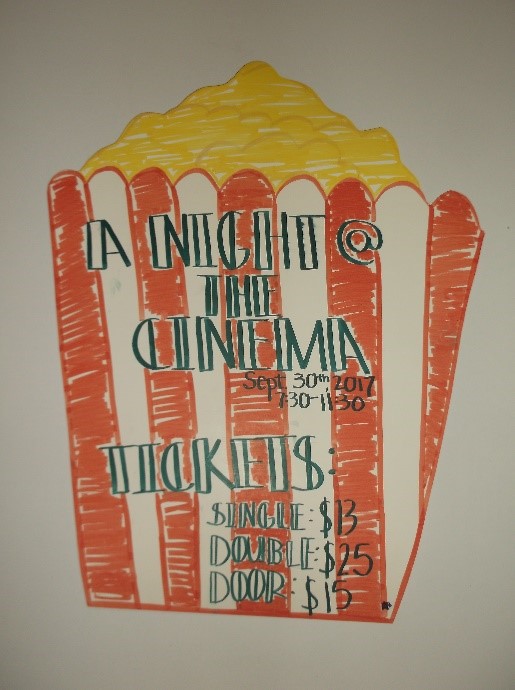 A NIGHT @
THE
CINEMA
Sept. 30th 2017
7:30-11:30
TICKETS:
SINGLE: $13
DOUBLE: $25
DOOR: $15